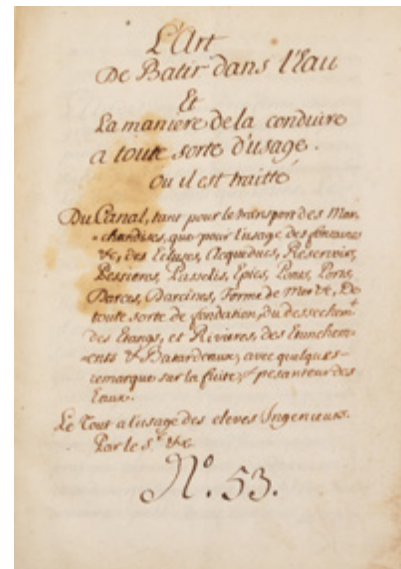 L'Art
De Batir dans l'Eau
Et
La maniere de la conduire
a toute sorte d'usage.
Ou il est traitté
Du Canal, tant pour le transport des Mar,
chandises, que pour l'usage des fontaines
&c, des Ecluses, Acqueducs, Reservoirs,
Pessieres, Passelis, Epics, Ponts, Ports,
Darces, Darcines, Forme de Mer &c, De
toute sorte de fondation, du dessechem.t
des Etangs, et Rivieres, des Etanchem-
ents & Batardeaux, avec quelques
remarques sur la fuite, & pesanteur des
Eaux.
Le Tout a l'usage des eleves Ingenieurs.
Par le S.r &c
N.o 53.